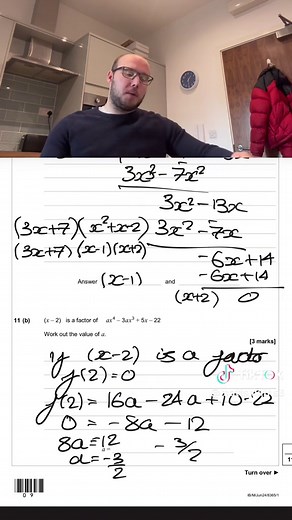 3x³ - 7x²
3x² - 13x
(3x+7)(x²+x-2) 3x² - 7x
(3x+7)(x-1)(x+2)
-6x+14
-6x+14
Answer (x-1) and (x+2) 0
11 (b) (x – 2) is a factor of ax⁴ – 3ax³ + 5x – 22
Work out the value of a.
[3 marks]
if (x-2) is a factor
f(2)=0
f(2) = 16a - 24a + 10 - 22
0 = -8a - 12
8a = 12 - 3/2
a = -3/2
Turn over ►
0 9